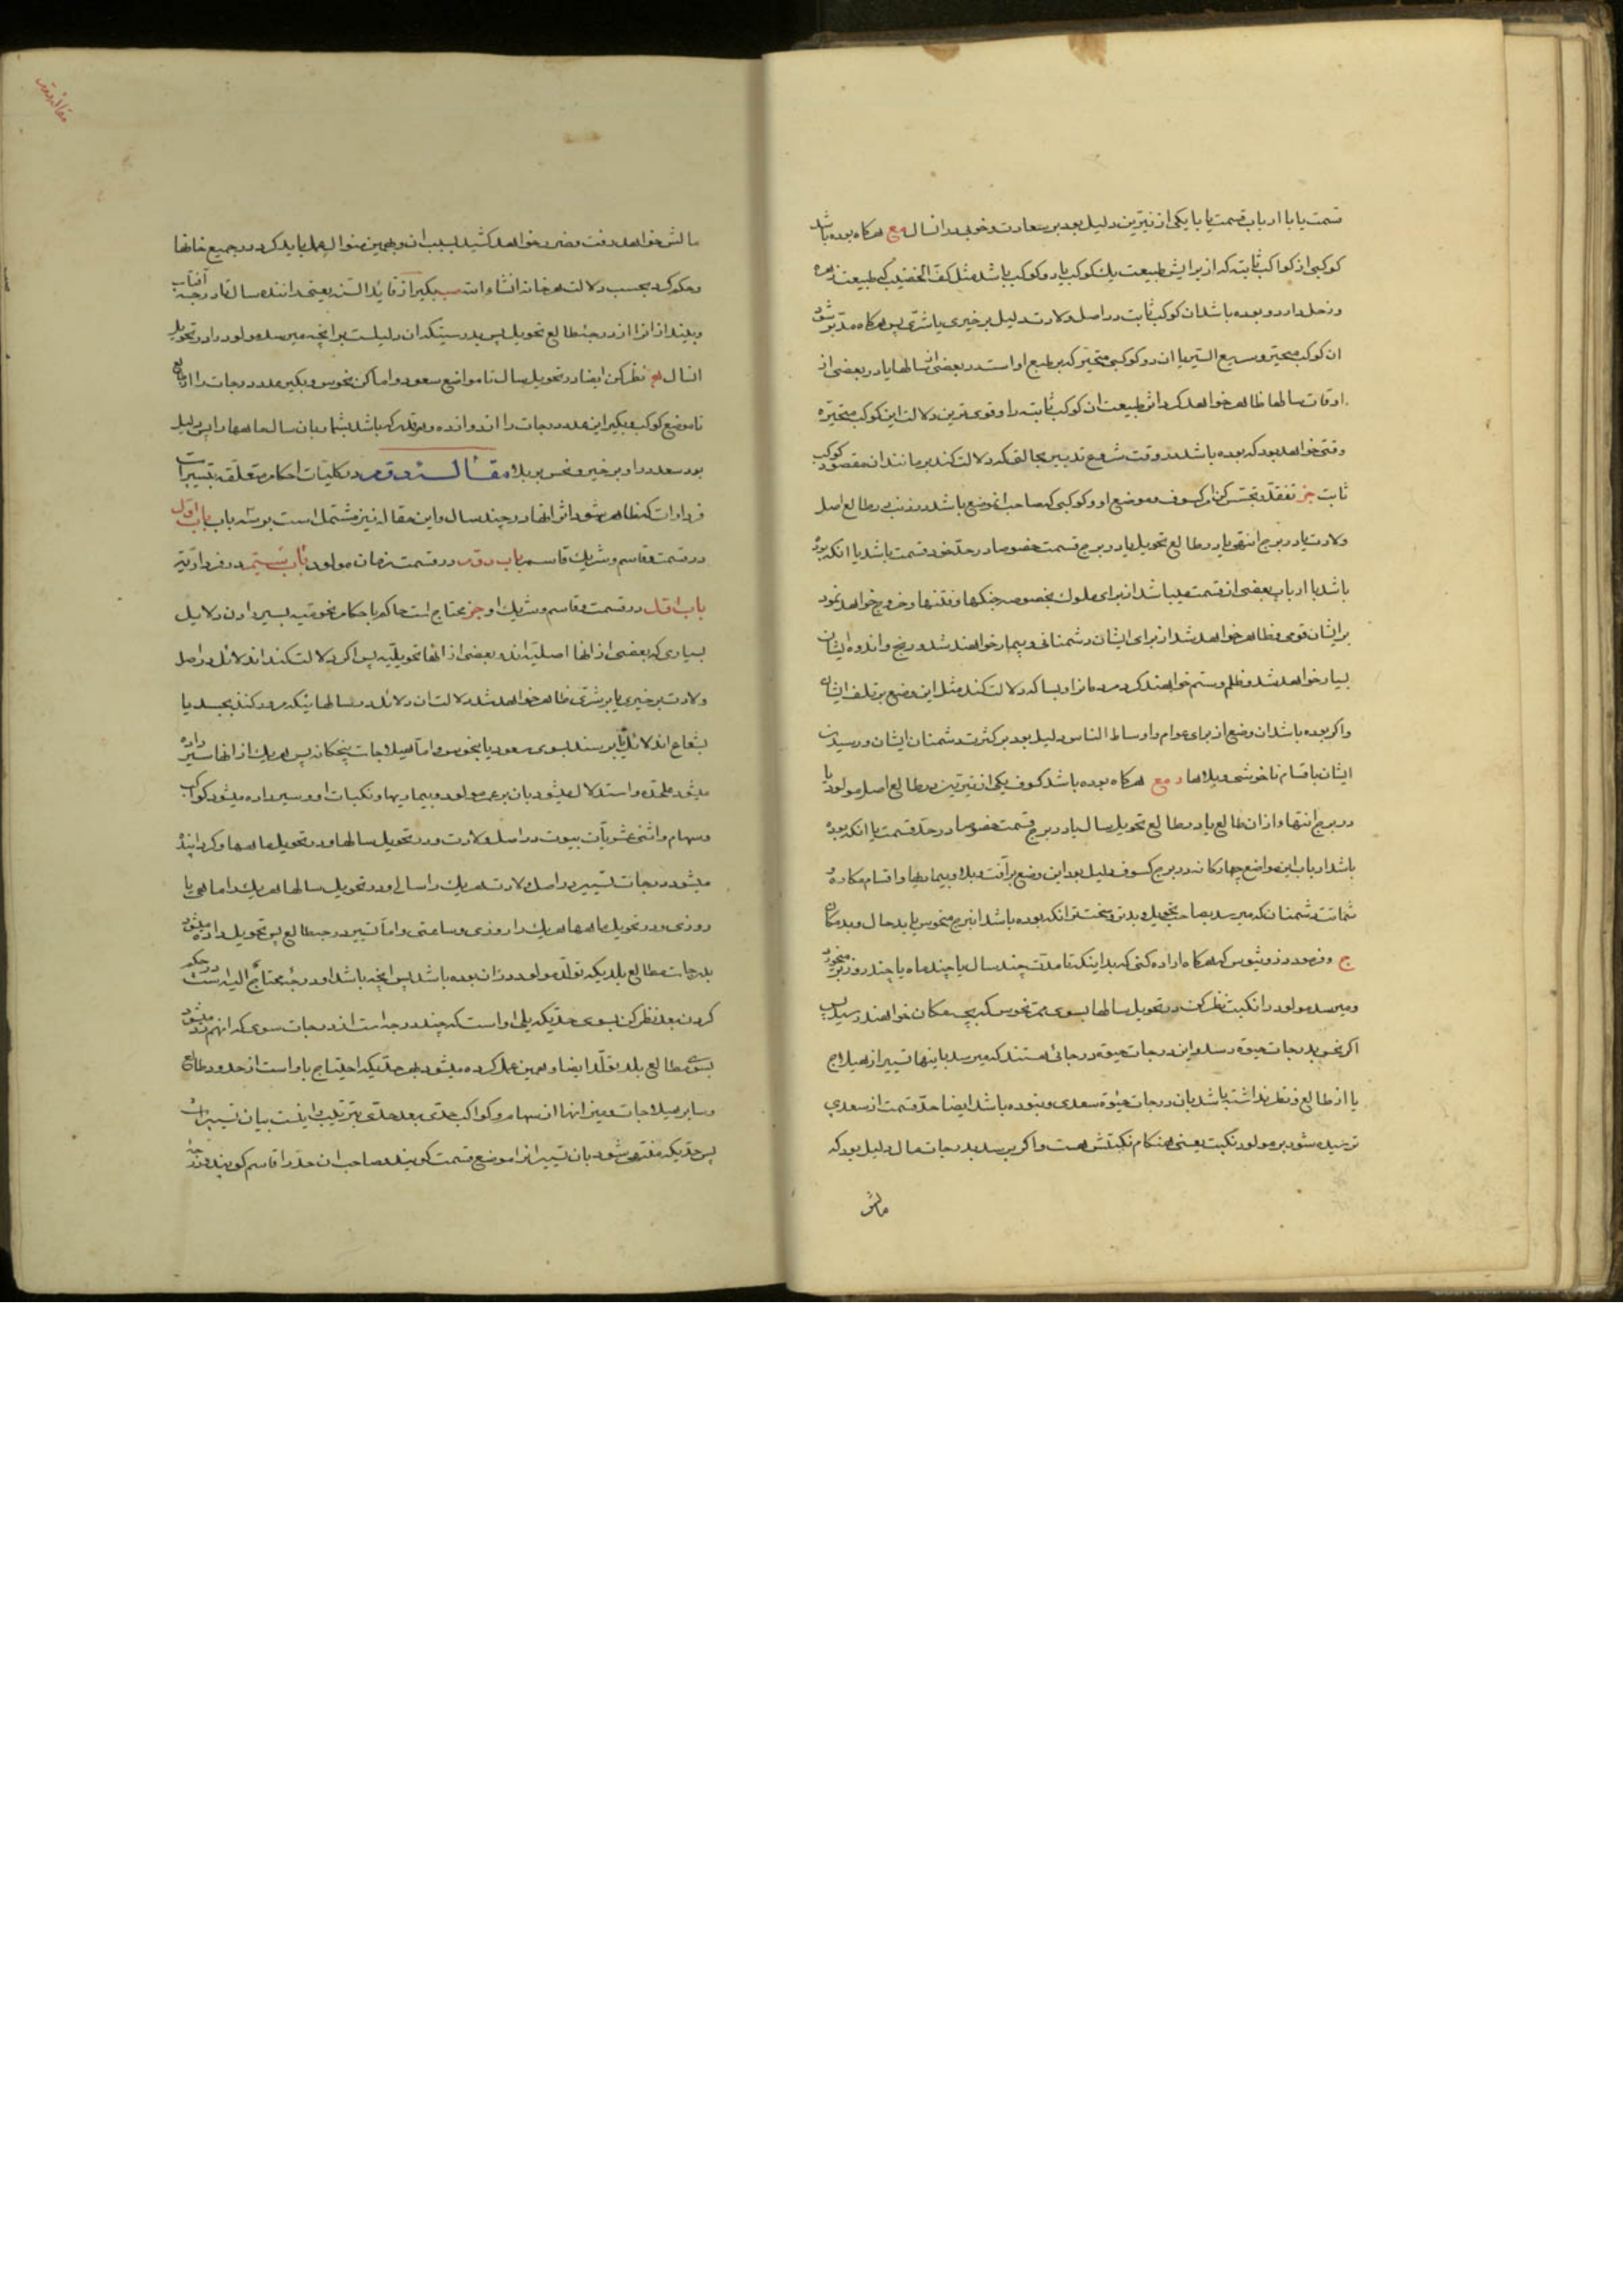 قسمت یا با ارباب قسمت یا با یکی از نیرین دلیل بود بر سعادت و خوبی در انسال مع هرکاه بوده باشد
کوکبی از کواکب ثابته که از برایش طبیعت یك کوکب یا دو کوکب باشد مثل کف الخضیب که طبیعت زهره
و زحل دارد و بوده باشد ان کوکب ثابت در اصل ولادت دلیل بر خیری یا شری پس هرکاه مدبر شود
ان کوکب متحیره سریع السیر یا ان دو کوکبی متحیر که بر طبع او است در بعضی از سالها یا در بعضی از
اوقات سالها ظاهر خواهد کرد اثر طبیعت ان کوکب ثابته را و قوی ترین دلالت این کوکب متحیره
وقتی خواهد بود که بوده باشد در وقت شروع تدبیر بحالتی که دلالت کند بر مانند ان مقصود کوکب
ثابت جز تفقد و تجسس کن از کسوف و موضع او و کوکبی که صاحب انموضع باشد در طالع اصل
ولادت یا در برج انتهی یا در طالع تحویل یا در برج قسمت خصوصا در حد خود قسمت باشد یا انکه بوده
باشد با ارباب بعضی از قسمت پس باشد از برای ملوك بخصوصه جنکها و فتنها و خروج خواهد نمود
بر ایشان قومی و ظاهر خواهد شد از برای ایشان دشمنانی و بیمار خواهند شد و رنج و اندوه ایشان
بسیار خواهد شد و ظلم و ستم خواهند کرد مردمانرا و بسا که دلالت کند مثل این وضع بر تلف ایشان
و اکر بوده باشد ان وضع از برای عوام و اوساط الناس دلیل بود بر کثرت دشمنان ایشان و رسیدن
ایشان باقسام ناخوشی و بلاها د مع هرکاه بوده باشد کسوف یکی از نیرین در طالع اصل مولود یا
در برج انتها و از ان طالع یا در طالع تحویل سال یا در برج قسمت خصوصا در حد قسمت یا انکه بوده
باشد ارباب این مواضع چهارکانه در برج کسوف دلیل بود این وضع بر آفت و بلا و بیماریها و اقسام مکاره و
شماتت دشمنان که میرسد بصاحب تحویل و بدتر و سختتر انکه بوده باشد ان برج منحوس یا بد حال و بد مکان
ج هرکاه اراده کنی که بدانیکه تا مدت چند سال یا چند ماه یا چند روز
و میرسد مولود را نکبت نظر کن در تحویل سالها بسوی نحوس که بچه مکان خواهند رسید پس
اکر نحس بدرجات حیوة رسد و این درجات حیوة درجاتی هستند که میرسد باینها تسییر از هیلاج
یا از طالع و نظر نداشته باشد بان درجات حیوة سعدی و نبوده باشد ایضا حد قسمت از سعدی
ترسیده شود بر مولود نکبت یعنی هنکام نکبتش هست و اکر برسد بدرجات مال دلیل بود که
مالش
مالش خواهد رفت و ضرر خواهد کشید بسبب ان و بهمین منوال عمل باید کرد در جمیع خانها
و حکم کرد بحسب دلالت هر خانه انشاء الله بکیر از قائد السنه یعنی داننده سال تا درجه آفتاب
و بینداز انرا از درجه طالع تحویل پس بدرستیکه ان دلیلست بر انچه میرسد مولود را در تحویل
انسال نظر کن ایضا در تحویل سال تا مواضع سعود و اماکن نحوس و بکیر عدد درجات را از طالع
تا موضع کوکب و بکیر این عدد درجات را اندوازده و هر قدر که باشد بشمار بان سالها و ماهها را پس دلیل
بود سعد در او بر خیر و نحس بر بلا مقاله دوم در کلیات احکام متعلقه بتسییرات
فردارات که ظاهر شود اثر انها در چند سال و این مقاله نیز مشتمل است بر سه باب باب اول
در قسمت و قاسم و شریك قاسم باب دوم در قسمت زمان مولود باب سیم در فرداریه
باب اول در قسمت و قاسم و شریك او جز محتاج است حاکم باحکام نجومیه بسیر دادن دلایل
بسیاری که بعضی از انها اصلیه اند و بعضی از انها تحویلیه پس اکر دلالت کند ان دلائل در اصل
ولادت بر خیری یا بر شری ظاهر خواهد شد دلالت ان دلائل در سالهائیکه مرور کنند بجسد یا
بشعاع ان دلائل یا برسند بسوی سعود یا نحوس و اما هیلاجات پنجکانه پس هر یك از انها سیر داده
میشود و استدلال میشود بان بر عمر مولود و بیماریها و نکبات او و سیر داده میشود کواکب
و سهام و اثنی عشریات بیوت در اصل ولادت و در تحویل سالها و در تحویل ماهها و کردانیده
میشود درجات تسییر در اصل ولادت هر یك را سالی و در تحویل سالها هر یك را ماهی یا
روزی و در تحویل ماهها هر یك را روزی و ساعتی و اما تسییر درجه طالع پس تحویل داده میشود
بدرجات مطالع بلدیکه تولد مولود در ان بوده باشد پس انچه باشد او درجه محتاج الیه است در حکم
کردن بعد نظر کن بسوی حدیکه یلی او است که چند درجه است از درجات سوی که انهم رد میشود
بسوی مطالع بلد تولد ایضا و همین عمل کرده میشود بهر حدیکه احتیاج باو است از حدود طالع
و سایر هیلاجات و غیر انها از سهام و کواکب حدی بعد حدی بترتیب و اینست بیان تسییرات
پس حدیکه منتهی شود بان تسییر انرا موضع قسمت کویند و صاحب ان حد را قاسم کویند